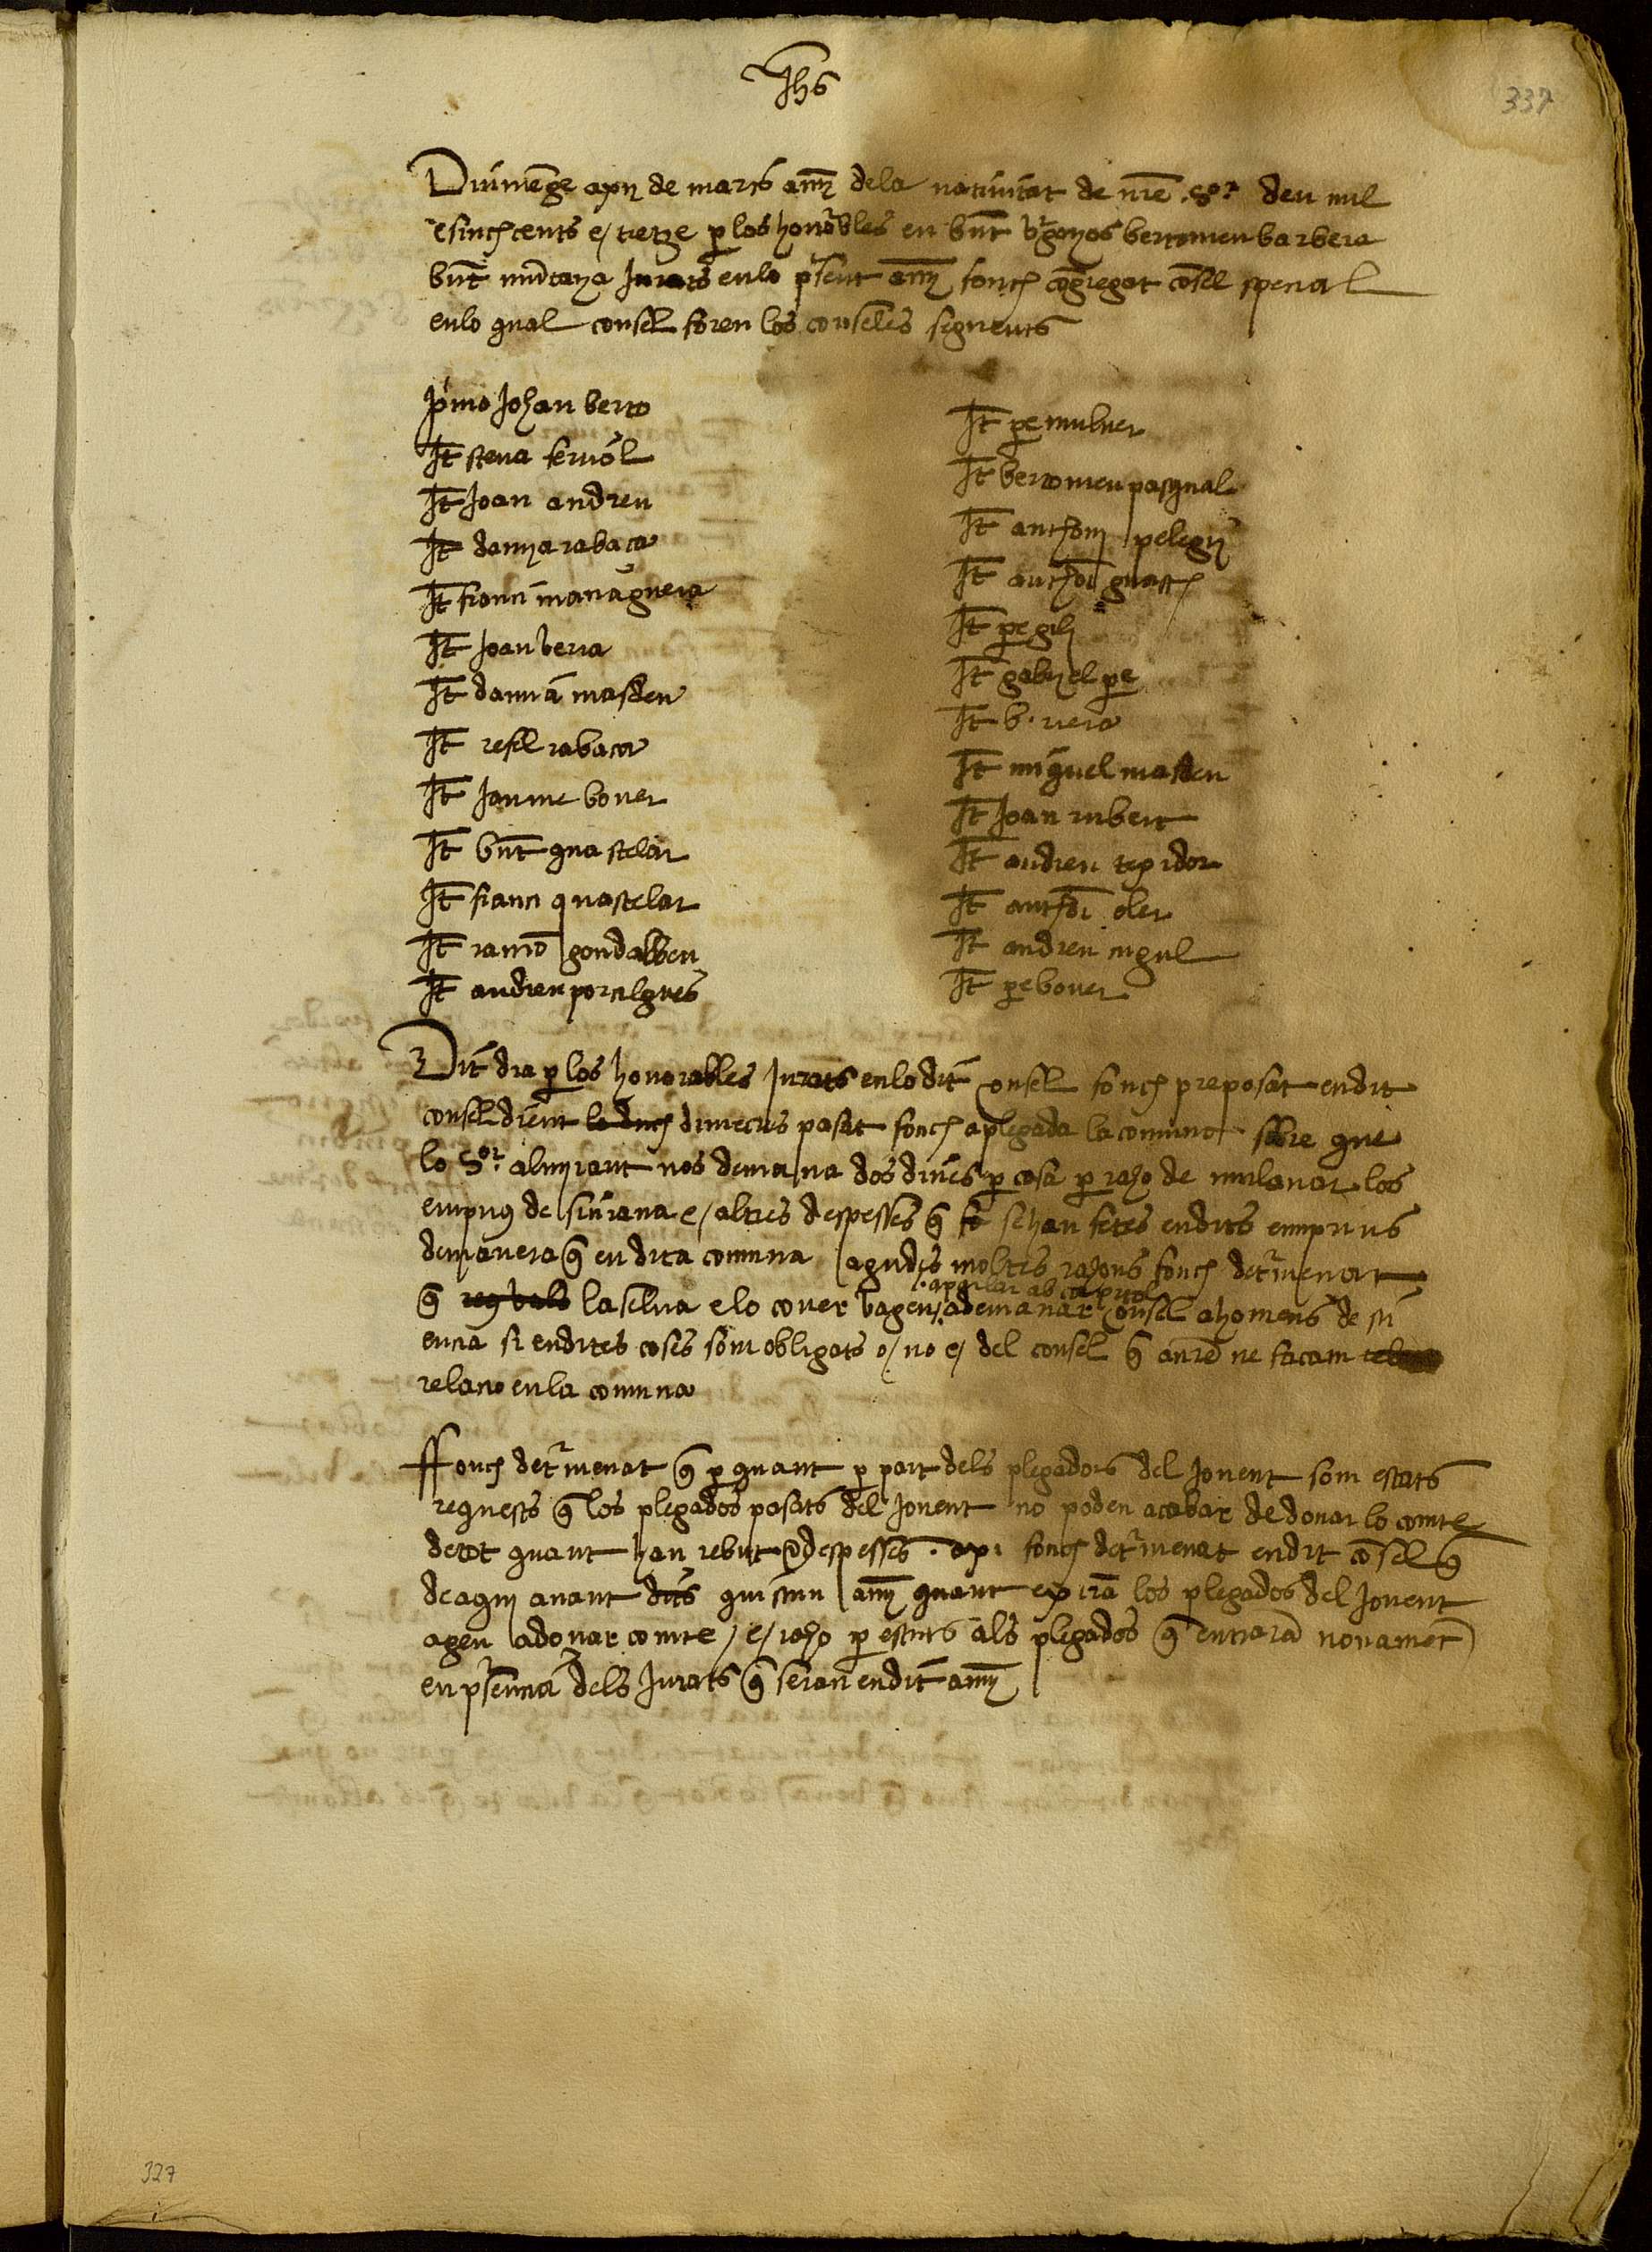 Jhs
337
Diumēge a xiij de mars añy dela nativitat de nr̄e Sor deu mil
e sinchcents e/ tretze p los honorables en bn̄t vrganyos bertomeu barbera
bn̄t mūtanya Jurats enlo pr̄sent añy fonch cōgregat cōsel spesial
enlo qual consel foren los conselés seguents
Jpimo Johan berto
It̄ steva ferriol
It̄ Joan andreu
It̄ damia rabaca
It̄ franci managuera
It̄ Joan veria
It̄ damia masdeu
It̄ resel rabaca
It̄ Jaume bover
It̄ bn̄t guastelar
It̄ franci quastelar
It̄ ramō gondalbeu
It̄ andreu porcilgues
It̄ pe mulner
It̄ bertomeu pasqual
It̄ anthoni pelegri
It̄ anthoī guasch
It̄ pe gili
It̄ gabriel pe
It̄ b. riera
It̄ miguel masdeu
It̄ Joan rubert
It̄ andreu texidor
It̄ anthoī oler
It̄ andreu cugul
It̄ pe bover
Dit dia p los honorables Jurats enlo dit consel fonch preposat en dit
consel dient lo dich dimecres pasat fonch aplegada la comuna sobre que
lo Sor almirant nos demana dos dines p casa p raho de mulavar los
emprius de siurana e/ altres despesses q̄ fe se han fetes en dits emprius
de manera q̄ en dita comuna agudes moltes rahons fonch detrmenat
. apgilar ab capitol
q̄ la selva e lo cover vagen a demanar consel a homens de sci
encia si en dites coses som obligats o/ no e/ del consel q̄ aurē ne facam
relacio en la comuna
Ffonch detrmenat q̄ p quant p part dels plegadors del Jovent som estats
requests q̄ los plegados pasats del Jovent no poden acabar de donar lo comte
de tot quant han rebut e despesses . axi fonch detrmenat en dit cōsel q̄
de aqui avant dits quiscun añy quant exirā los plegados del Jovent
agen a donar comte / e/ raho p escrits als plegados q̄ entrarā novamēt
en pr̄sencia dels Jurats q̄ seran en dit añy
327